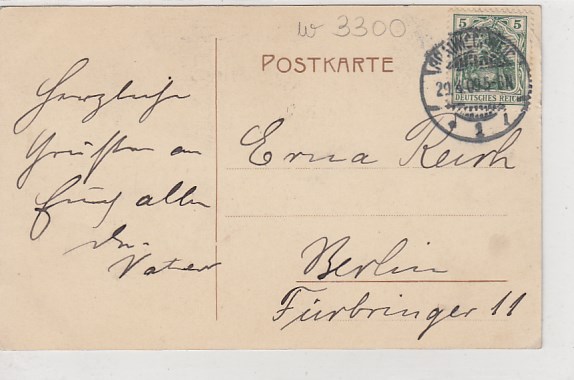 w 3300
POSTKARTE
5 5
DEUTSCHES REICH
29.4.09.5-6N
Herzliche
Grüße an
Euch alle
Vater
Erna Reich
Berlin
Fürbringer 11